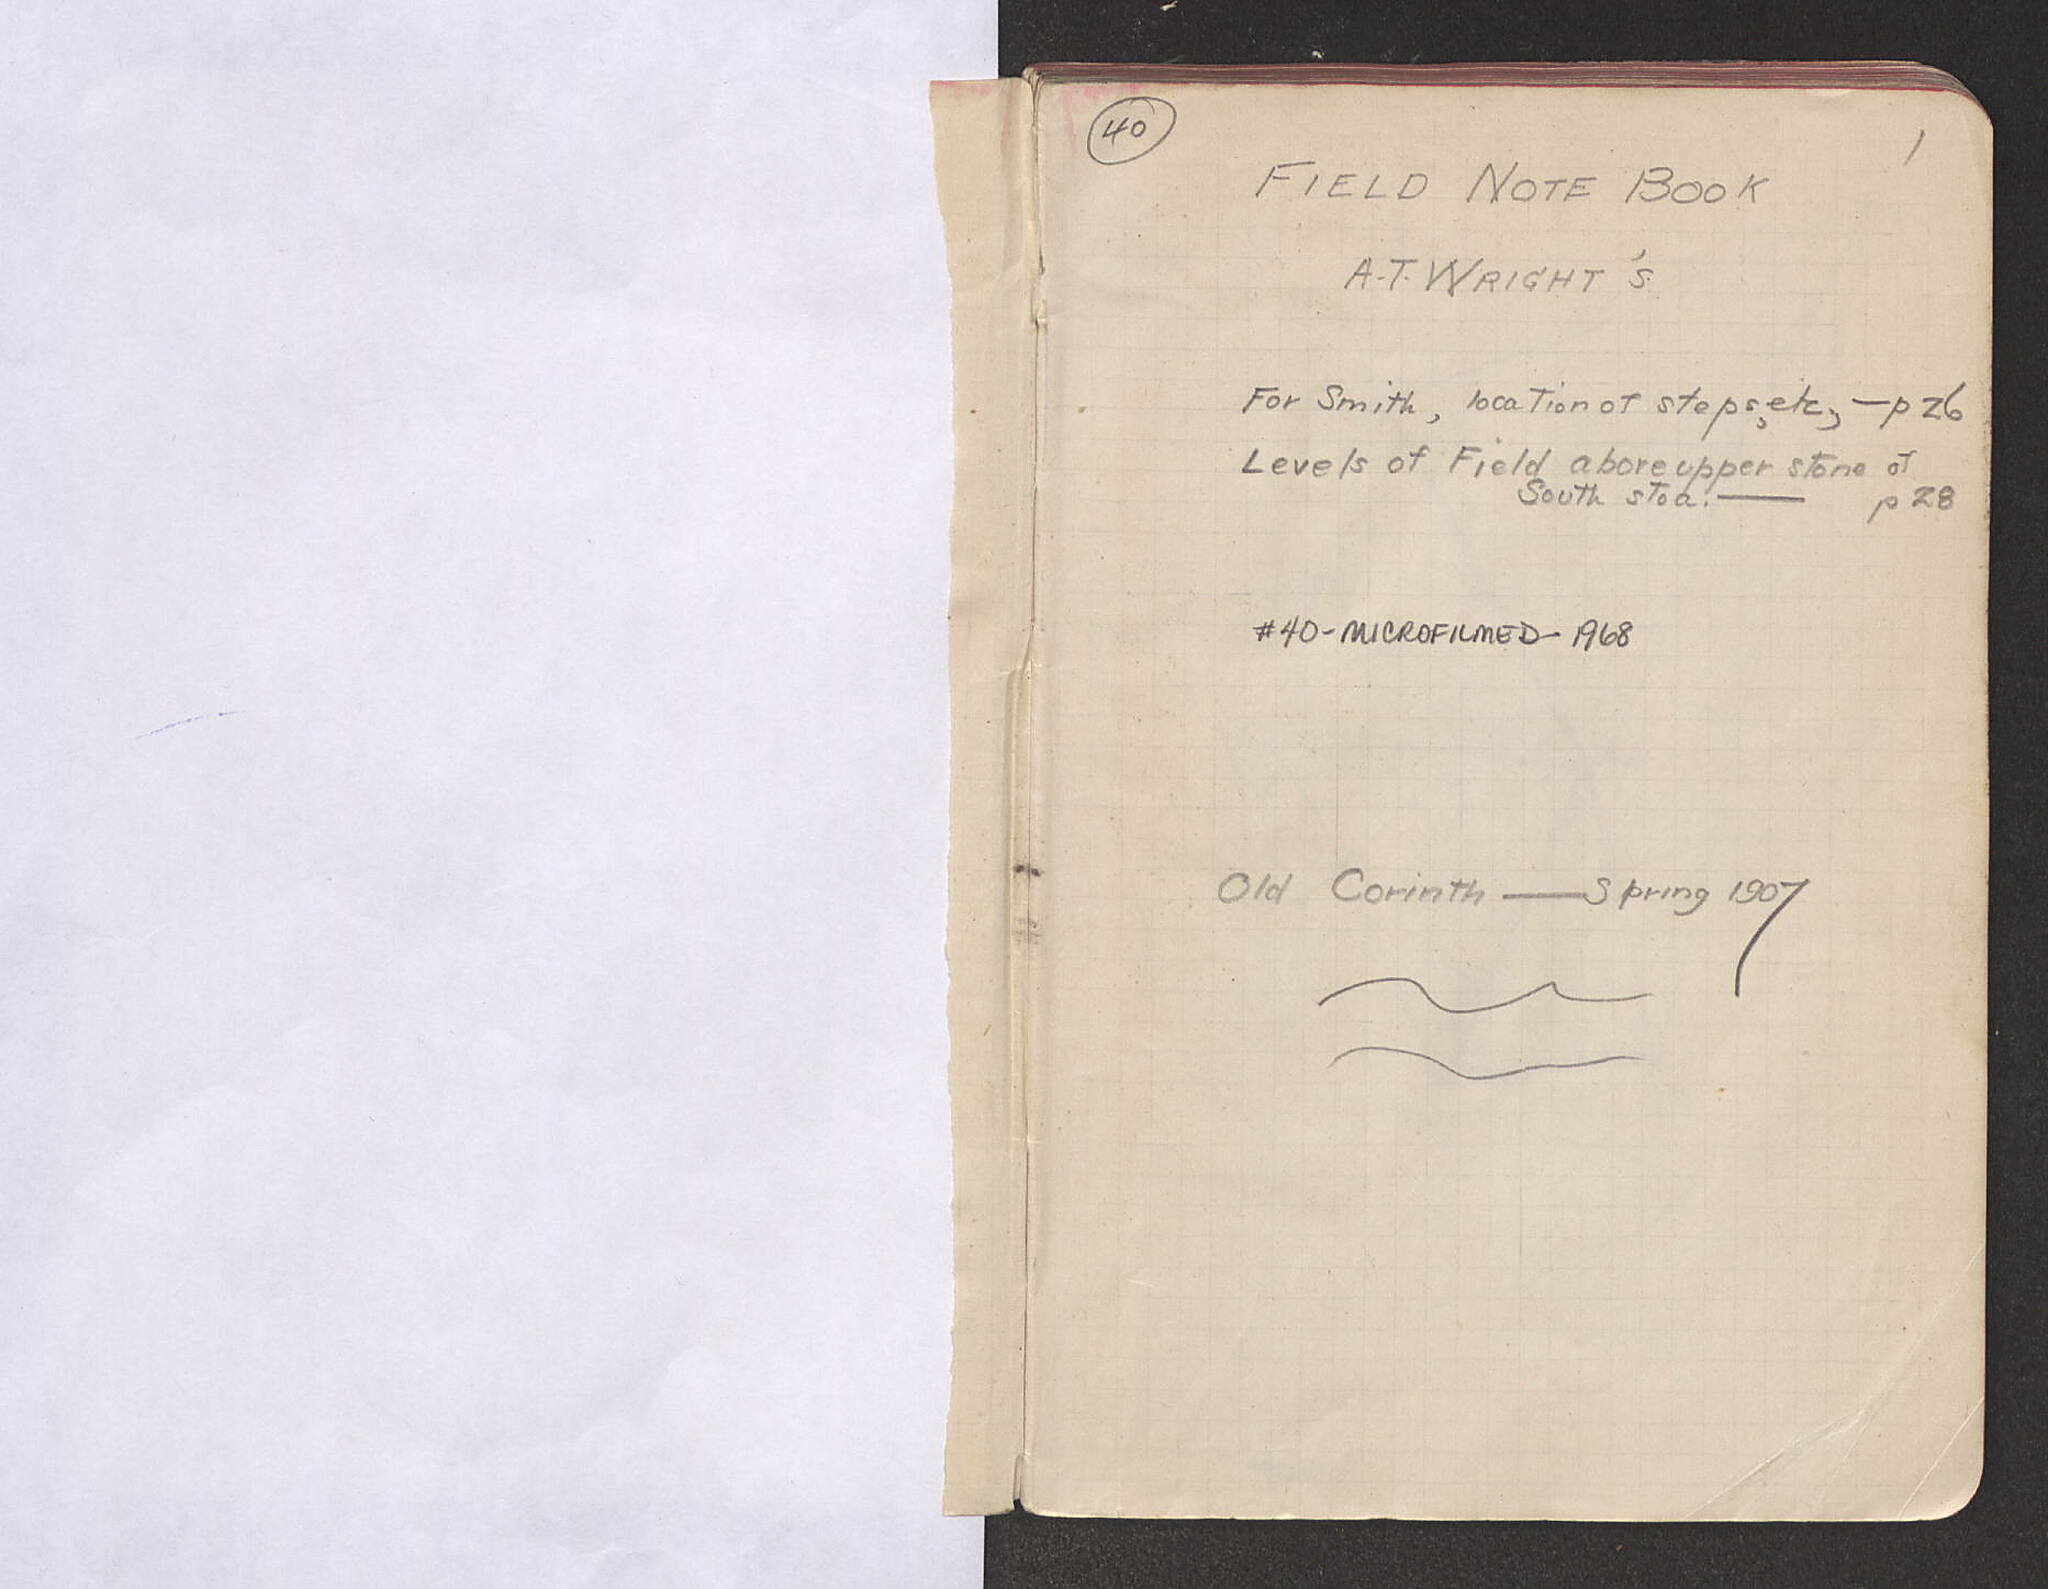 40
1
FIELD NOTE BOOK
A.T. WRIGHT'S
For Smith, location of steps, etc, — p 26
Levels of Field above upper stone of
South stoa. — p 28
#40 - MICROFILMED - 1968
Old Corinth — Spring 1907